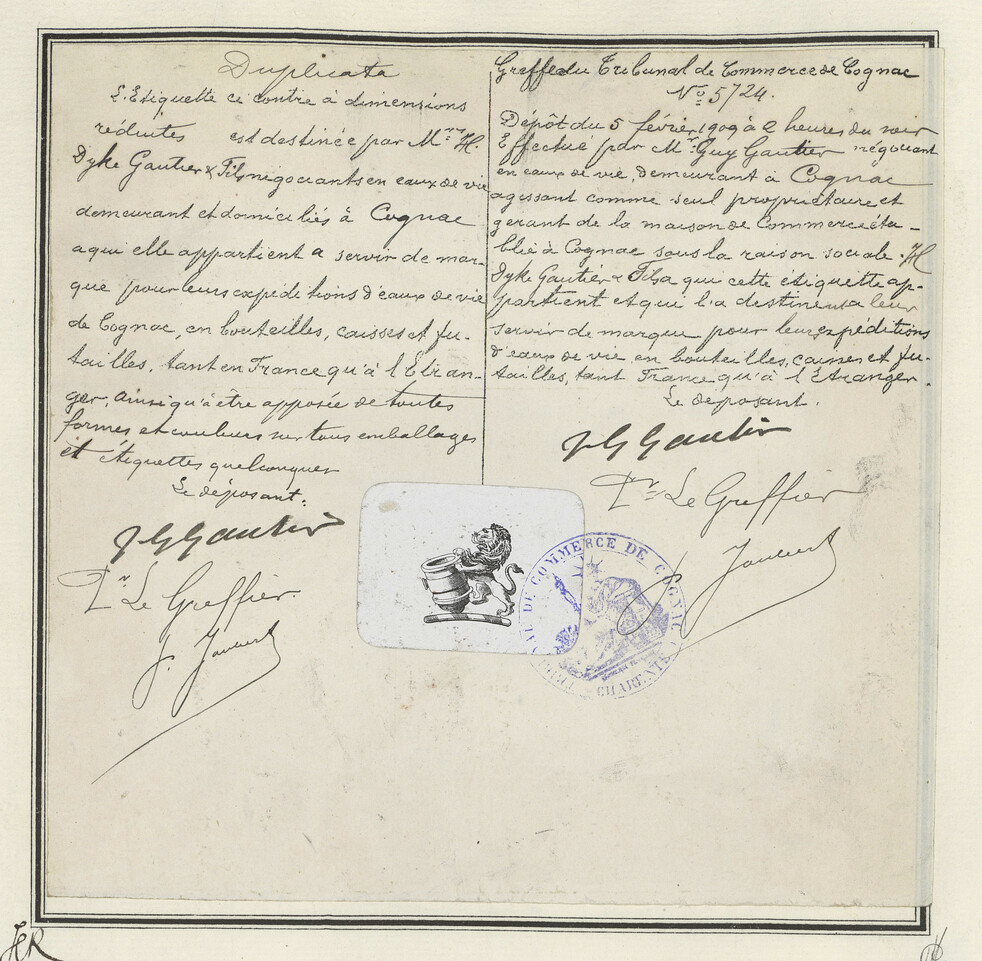 Duplicata
L'Etiquette ci contre à dimensions
réduites est destinée par Mrs H.
Dyke Gautier & Fils négociants en eaux de vie
demeurant et domiciliés à Cognac
a qui elle appartient a servir de mar-
que pour leurs expéditions d'eaux de vie
de Cognac, en bouteilles, caisses et fu-
tailles, tant en France qu'à l'Etran-
ger, ainsi qu'à être apposée de toutes
formes et couleurs sur tous emballages
et étiquettes quelconques
Le déposant:
J G Gautier
Pr Le Greffier.
J. Joubert
Greffe du Tribunal de Commerce de Cognac
No 5724.
Dépôt du 5 février 1909 à 2 heures du soir
Effectué par Mr Guy Gautier négociant
en eaux de vie, demeurant à Cognac
agissant comme seul propriétaire et
gérant de la maison de Commerce éta-
blie à Cognac sous la raison sociale H
Dyke Gautier & Fils a qui cette étiquette ap-
partient et qui l'a destine a leur
servir de marque pour leurs expéditions
d'eaux de vie en bouteilles, caisses et fu-
tailles, tant France qu'à l'Etranger.
Le déposant.
J G Gautier
Pr Le Greffier
Joubert
DE COMMERCE DE COGNAC
CHARENTE